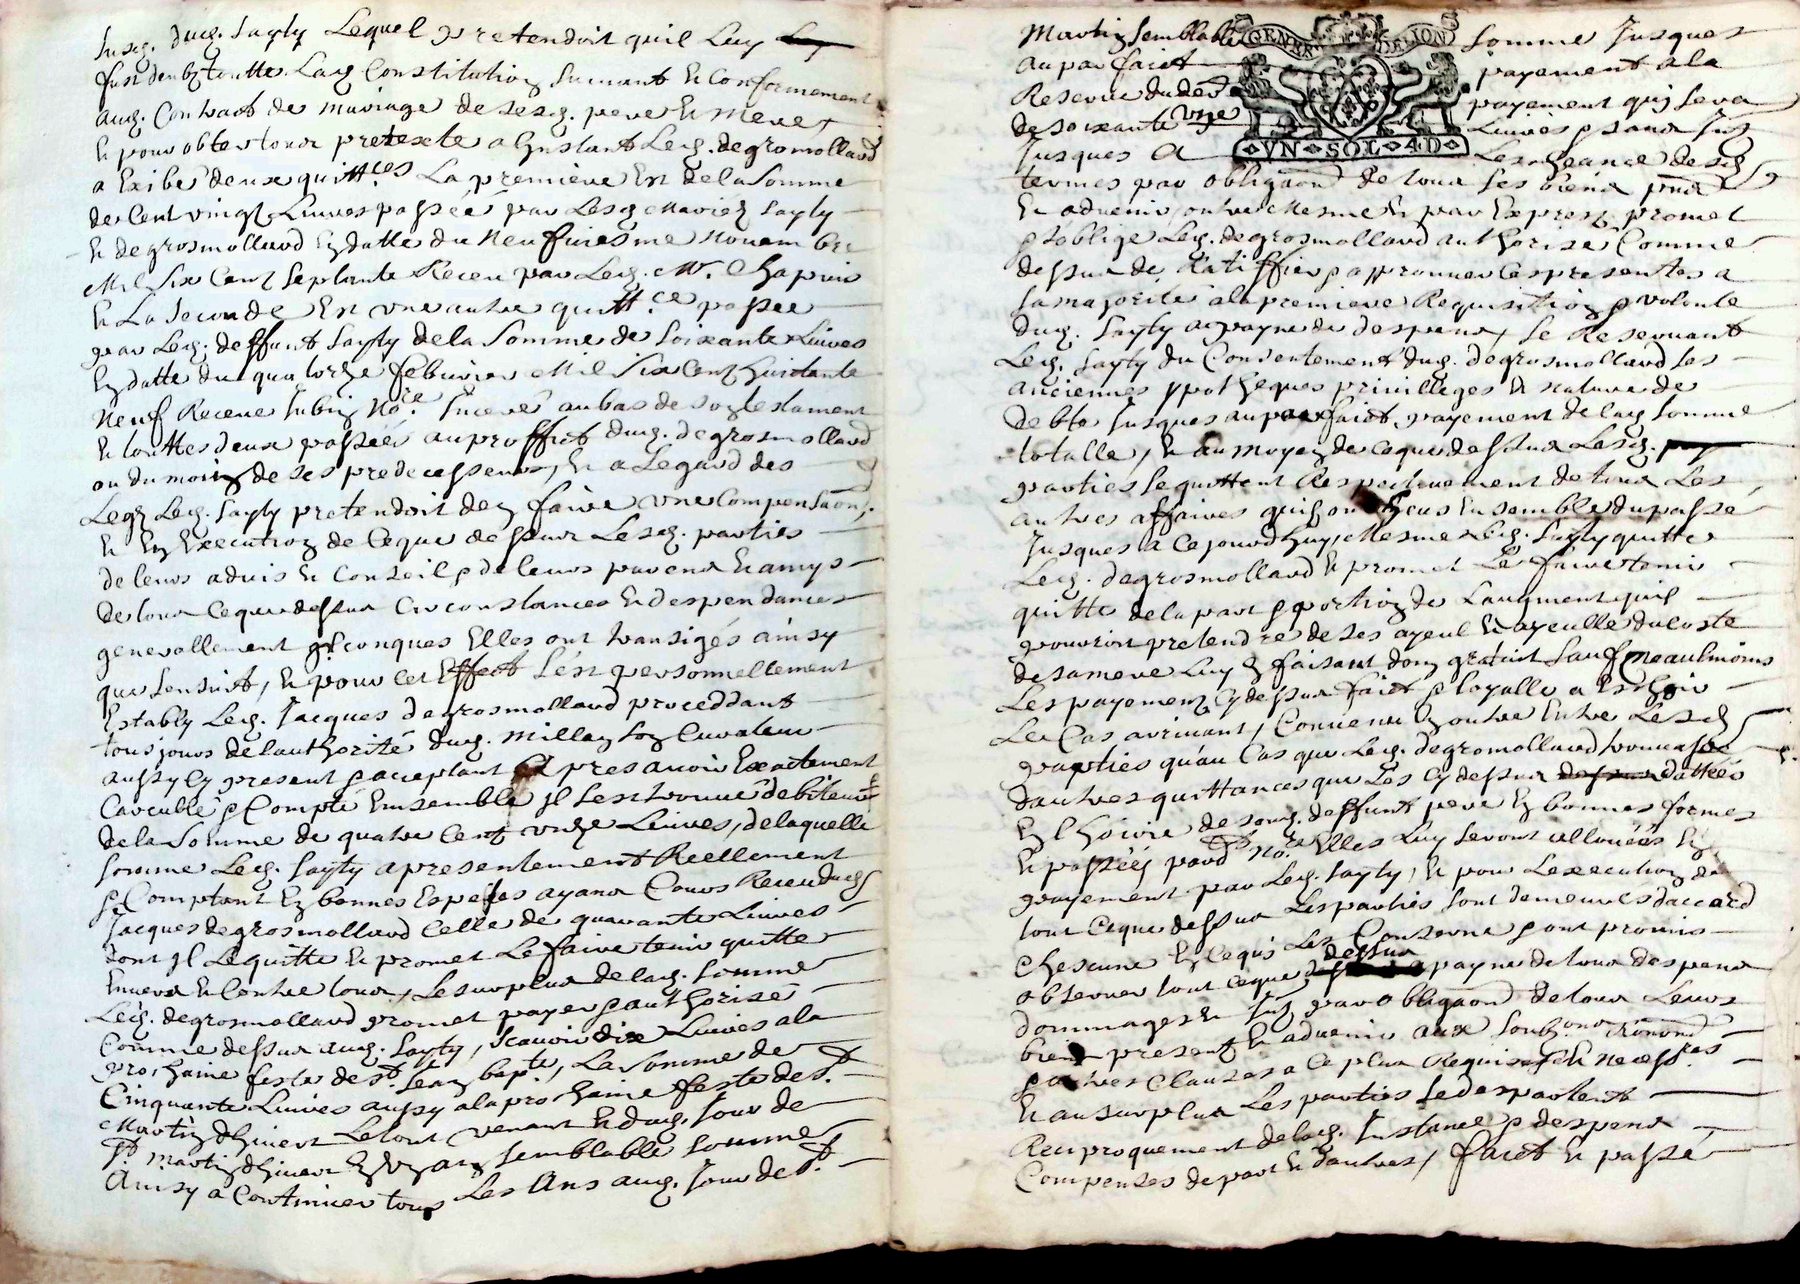 dud. Sayty Lequel pretendoit quil Luy
fust deub touttes Lad Constitution suivant et Conformement
aud. Contract de mariage de sesd. pere et mere
et pour obter tous pretexte a Linstant Led. degromolland
a Exibé deux quittces La premiere Est de la somme
de Cent vingt Livres passée par Lesd Mariez Sayty
et degrosmolland En datte du Neufviesme Novembre
Mil Six Cent Septante Receu par Led. Mr. Chapuis
et La seconde Est une autre quittce passée
par Led. deffunt Sayty de la Somme de soixante Livres
En datte du quatorze febvrier Mil Six Cent Huictante
Neuf Receue Nore. Incerée au bas de son testament
Et touttes deux passées au proffict dud. degrosmolland
ou du moins de ses predecesseurs, Et a Legard des
Led. Sayty pretendoit den faire une Compensaon.
Et En Execution de Ceque dessus Lesd. parties
de leurs advis Et Conseil & de leurs parens Et amys
de tous Ceque dessus Circonstances Et despendances
generallement qlconques Elles ont transigés ainsy
que sensuit, Et pour Cet Effect sest personnellement
Estably Led. Jacques degrosmolland proceddant
tousjours de lauthorité dud. Millan son Curateur
aussy Cy present & acceptant Et apres avoir Exactement
Carculé & Compté Ensemble Jl sest trouvé debiteur
de la somme de quatre Cent unze Livres, de laquelle
somme Led. Sayty a presentement Reellement
& Comptant En bonnes Espeses ayans Cours Receu dud
Jacques degrosmolland Celle de quarante Livres
dont Jl Le quitte Et promet Le faire tenir quitte
Envers Et Contre tous, Le surplus de lad. somme
Led. degrosmolland promet payer & authorisé
Comme dessus aud. Sayty, scavoir dix Livres a la
prochaine feste de St. Jean bapte, La somme de
Cinquante Livres aussy a la prochaine feste de St.
Martin dhivert Le tout venant Et dud. Jour de
St. Martin dhivert En un an semblable somme
Ainsy a Continuer tous Les Ans aud. Jour de St.
Martin semblable somme Jusques
GENER DE LION
au parfaict payement a la
Reserve du der payement quj sera
de soixante une Livres & sans
VN SOL 4D
Jusques a Lescheance desd
termes par obligaon de tous ses biens pnts
Et advenir, outre Mesme Et par Expres promet
& soblige Led. degrosmolland authorisé Comme
dessus de Ratiffier & approuver Ces presentes a
sa majorité a la premiere Requisition & volonté
dud. Sayty a payne de despens, se Reservant
Led. Sayty du Consentement dud. degrosmolland ses
anciennes ypotheques privilleges Et nature de
debte Jusques au parfaict payement de lad somme
totalle, Et au moyen de ceque dessus Lesd.
parties se quittent Respectivement de tous Les
autres affaires quils ont heus Ensemble du passé
Jusques a Ce jourdhuy, Mesme Led. Sayty quitte
Led. degrosmolland Et promet Le faire tenir
quitte de la part & portion de Laugment quil
pourroit pretendre de ses ayeul Et ayeulle du coste
de sa mere Luy En faisant don gratuit sauf neaulmoins
Les payements Cy dessus faict & loyalle a Eschoir
Le Cas arrivant, Convenu En outre Entre Lesd
parties quau Cas que Led. degromolland trouvasse
dautres quittances que Les Cy dessus dattées
de soud. deffunt pere En bonnes formes
Et passées pard Nore. Elles Luy seront allouées En
payement par Led. Sayty, Et pour Lexecution de
tout Ceque dessus Les parties sont demeurés daccord
Chescune En Cequi Les Conserne & ont promis
observer tout ceque dessus a payne de tous despens
dommages Et Jnts par obligaon de tous Leurs
biens presents Et advenir aux
& autres Clauses a Ce plus Requises Et necessres.
Et au surplus Les parties se despartent
Reciproquement de lad. Instance & despens
Compensés de part Et dautres, faict Et passé